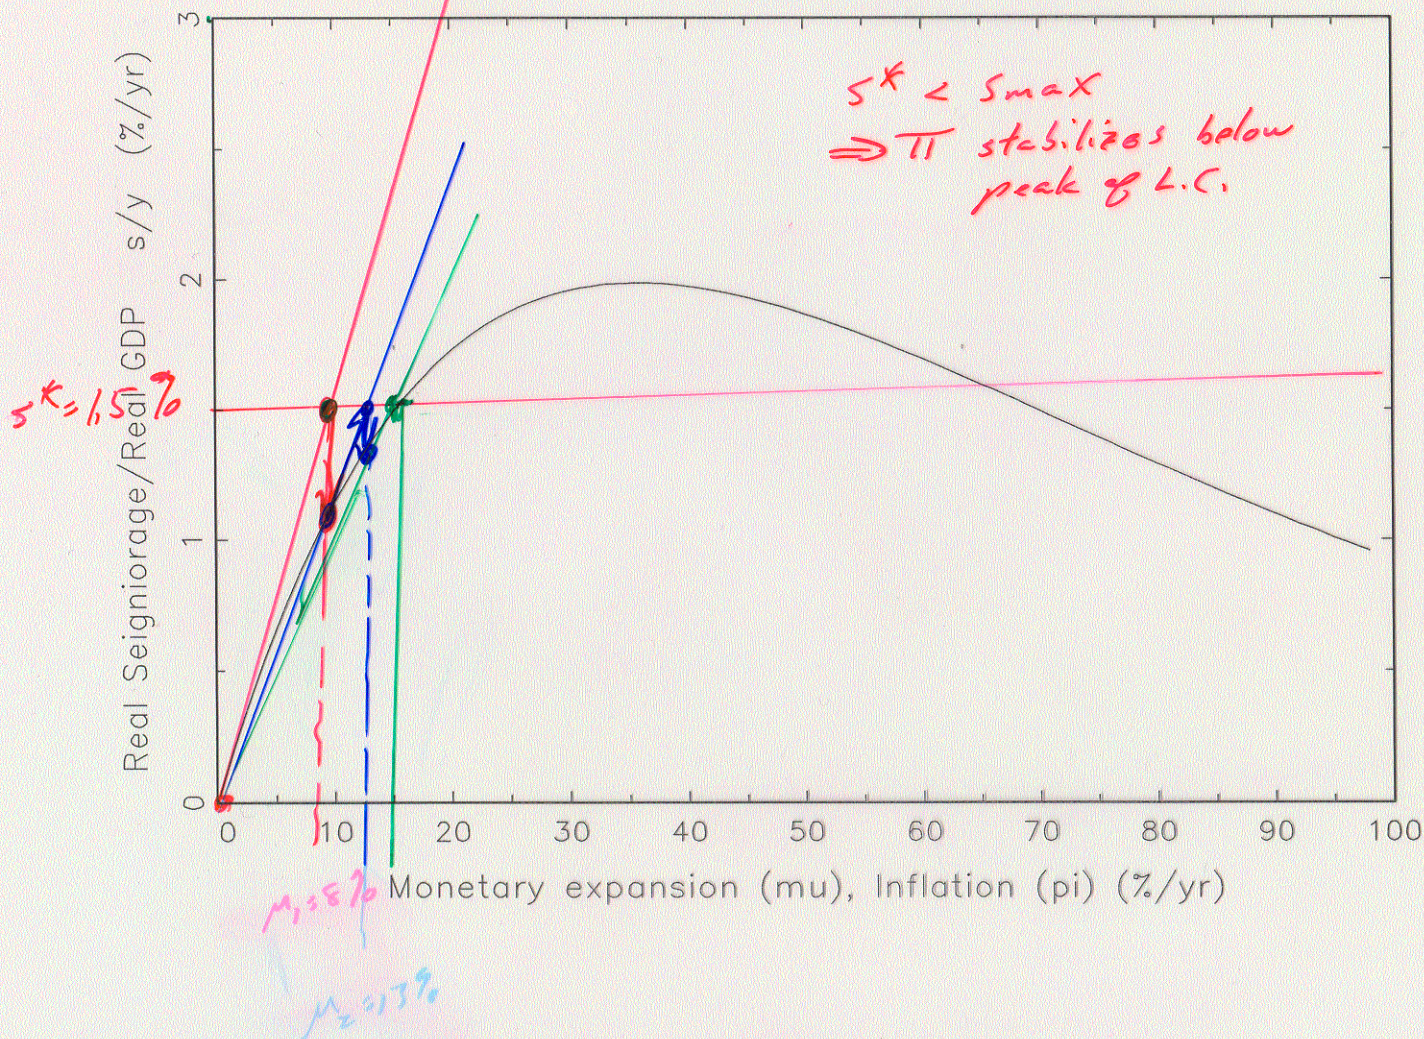 3
s* < smax
⇒ π stabilizes below
peak of L.C.
2
s* = 1,5 %
1
0
Real Seigniorage/Real GDP s/y (%/yr)
0 10 20 30 40 50 60 70 80 90 100
Monetary expansion (mu), Inflation (pi) (%/yr)
μ₁=8%
μ₂=13%